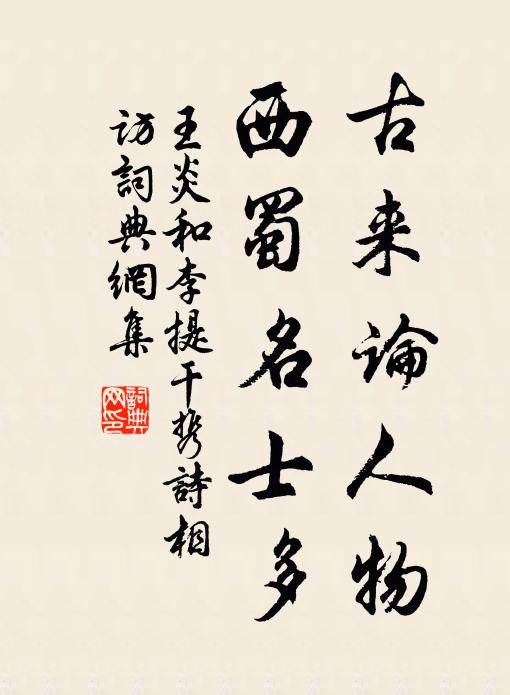 古来論人物
西蜀名士多
王炎和李提干携詩相
訪詞典網集
詞典
网印